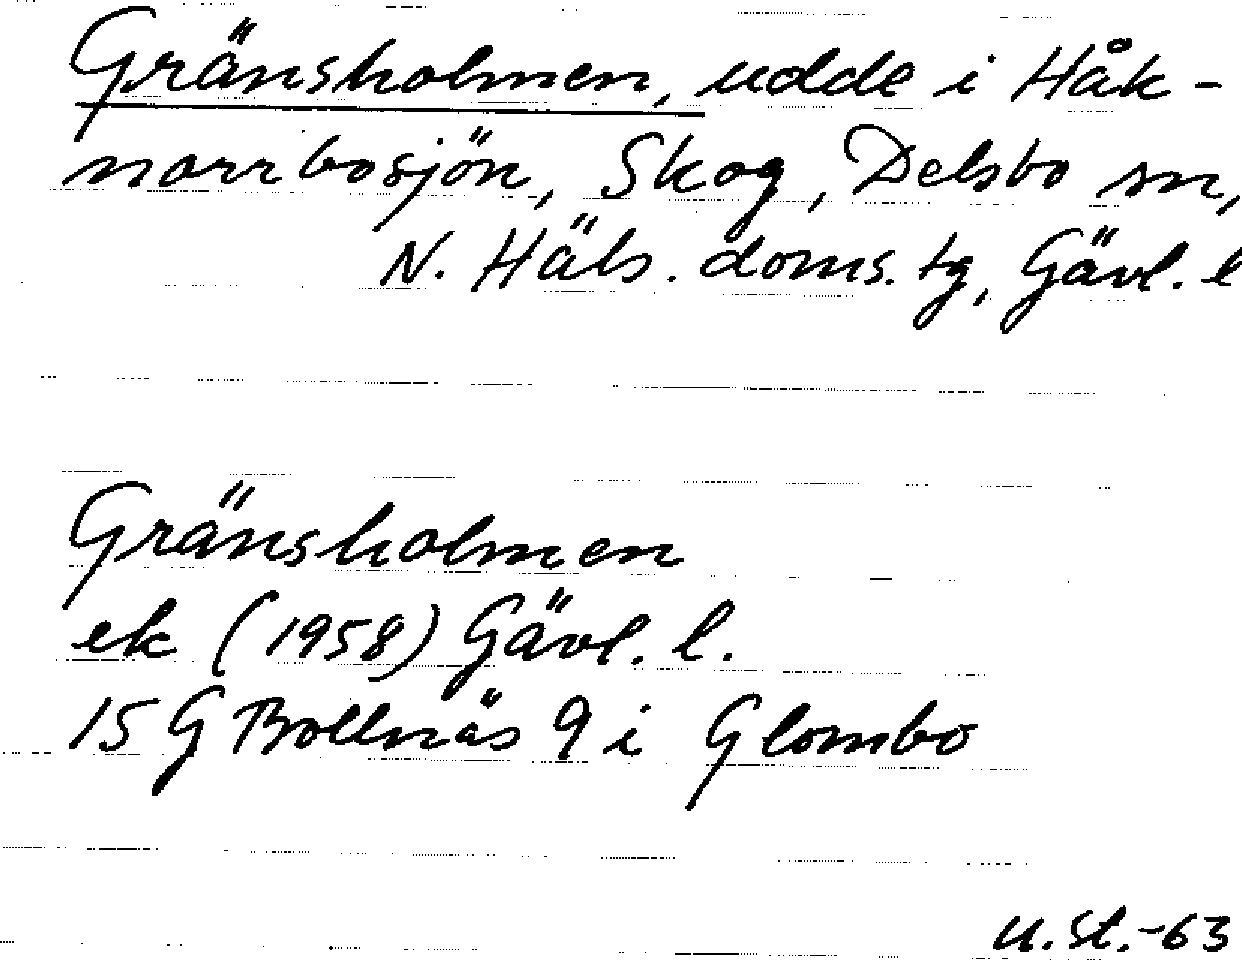 Gränsholmen, udde i Håk-
norrbosjön, Skog, Delsbo sn,
N. Häls. doms. tg, Gävl. l
Gränsholmen
ek (1958) Gävl. l.
15 G Bollnäs 9 i Glombo
U.St.-63